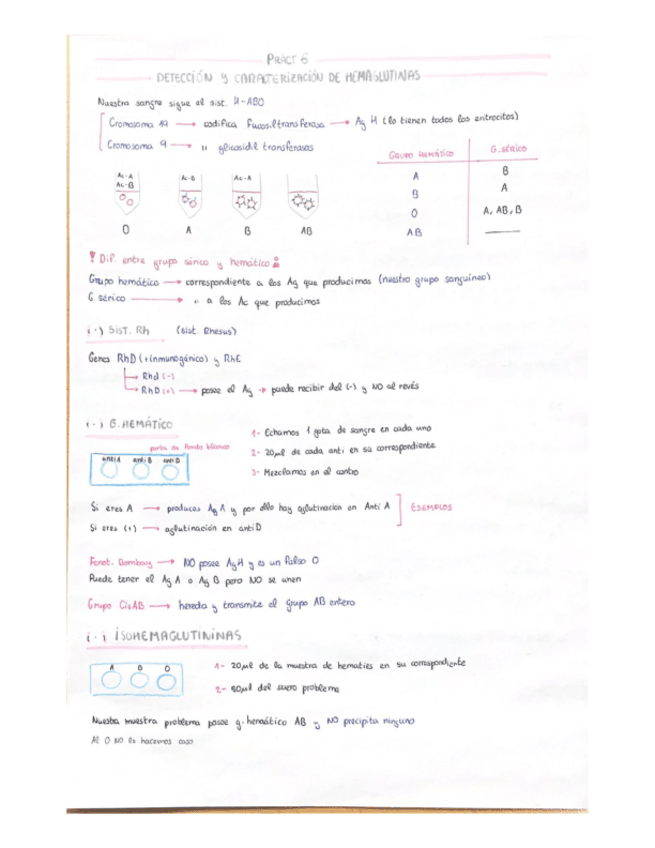 PRÁCT 6
DETECCIÓN y CARACTERIZACIÓN DE HEMAGLUTINAS
Nuestra sangre sigue el sist. H-ABO
Cromosoma 19 → codifica Fucosiltransferasa → Ag H (lo tienen todos los eritrocitos)
Cromosoma 9 → " glicosidil transferasas
GRUPO hemático G. sérico
A B
B A
O A, AB, B
AB —
Ac-A
Ac-B
Ac-B
Ac-A
O A B AB
! Dif. entre grupo sérico y hemático
Grupo hemático → correspondiente a los Ag que producimos (nuestro grupo sanguíneo)
G. sérico → " a los Ac que producimos
SIST. Rh (sist. Rhesus)
Genes RhD (+inmunogénico) y RhE
Rhd (-)
RhD (+) → posee el Ag → puede recibir del (-) y NO al revés
G. HEMÁTICO
porta de fondo blanco
anti A anti B anti D
1- Echamos 1 gota de sangre en cada uno
2- 20µl de cada anti en su correspondiente
3- Mezclamos en el centro
Si eres A → produces Ag A y por ello hay aglutinación en Anti A
Si eres (+) → aglutinación en anti D
EJEMPLOS
Fenot. Bombay → NO posee Ag H y es un falso O
Puede tener el Ag A o Ag B pero NO se unen
Grupo CisAB → hereda y transmite el grupo AB entero
ISOHEMAGLUTININAS
A B O
1- 20µl de la muestra de hematíes en su correspondiente
2- 50µl del suero problema
Nuestra muestra problema posee g. hemático AB y NO precipita ninguno
Al O NO le hacemos caso